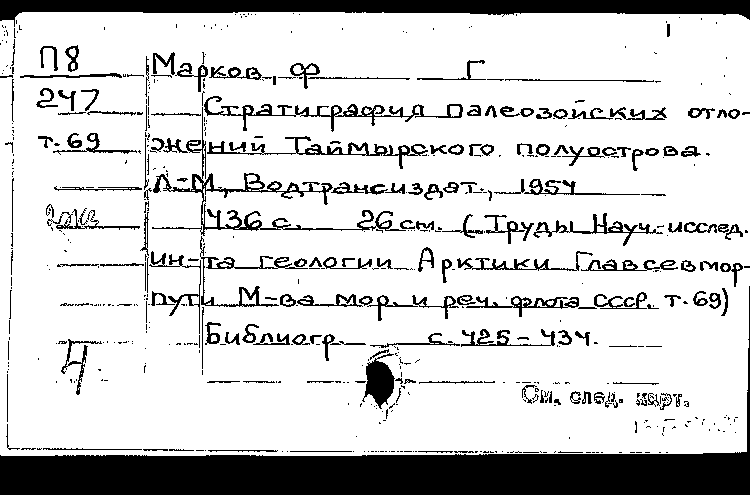 П8 Марков, Ф Г
247 Стратиграфия палеозойских отло-
т.69 жений Таймырского полуострова.
Л-М, Водтрансиздат., 1954
2экз 436 с. 26 см. (Труды Науч.-исслед.
ин-та геологии Арктики Главсевмор-
пути М-ва мор. и реч. флота СССР. т.69)
Библиогр. с. 425-434.
Ч.
См. след. карт.